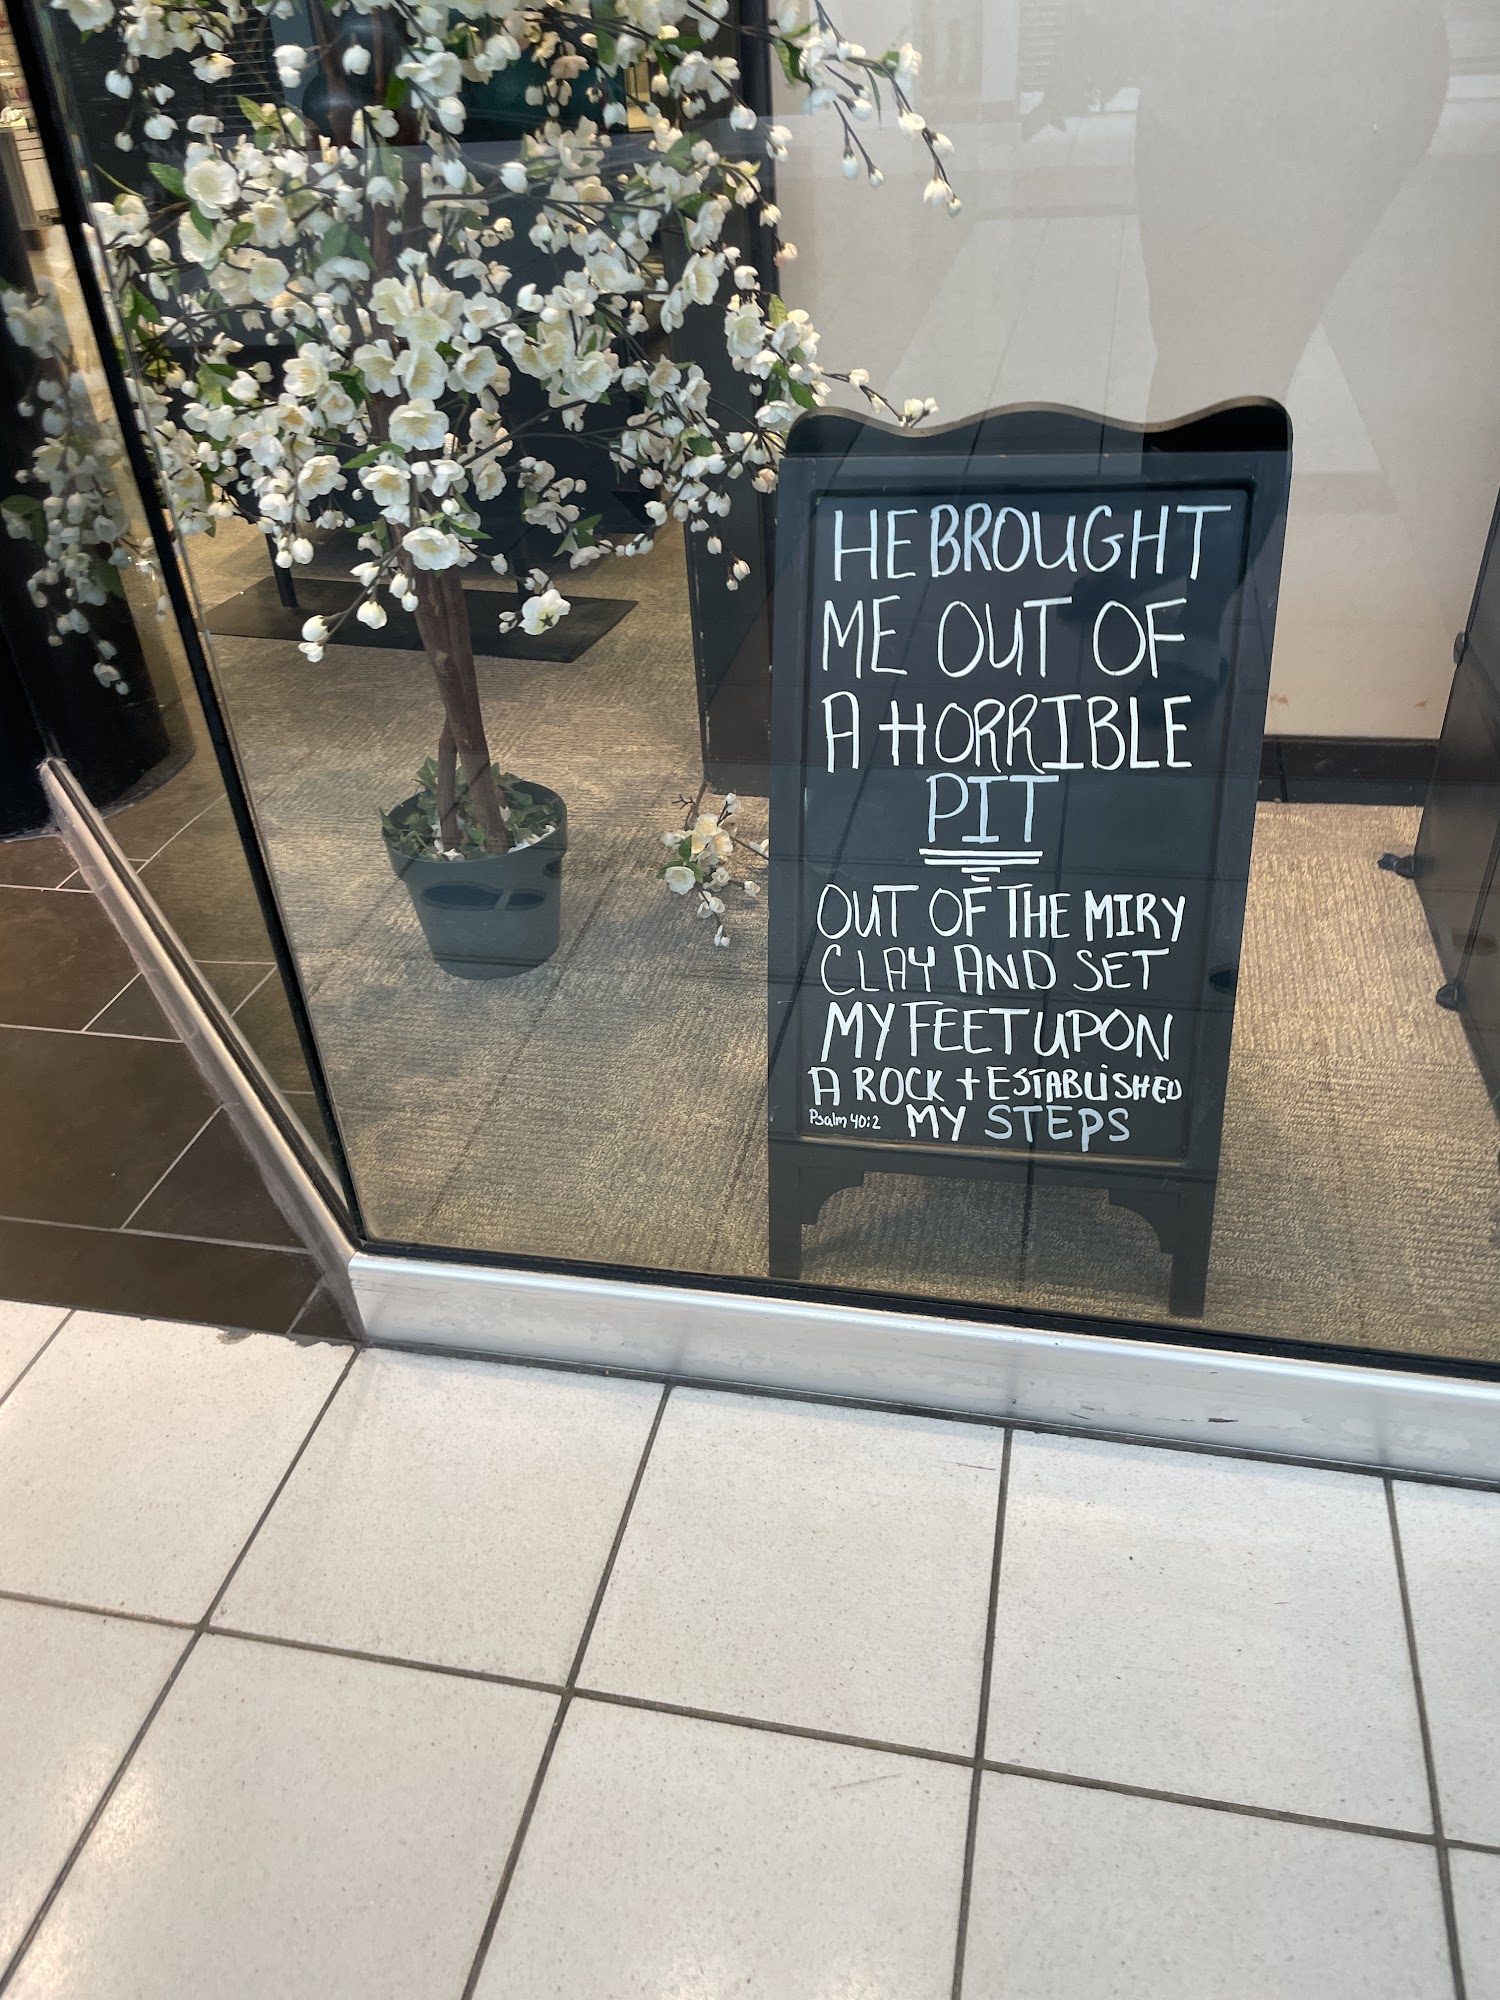 HE BROUGHT
ME OUT OF
A HORRIBLE
PIT
OUT OF THE MIRY
CLAY AND SET
MY FEET UPON
A ROCK + ESTABLISHED
Psalm 40:2 MY STEPS